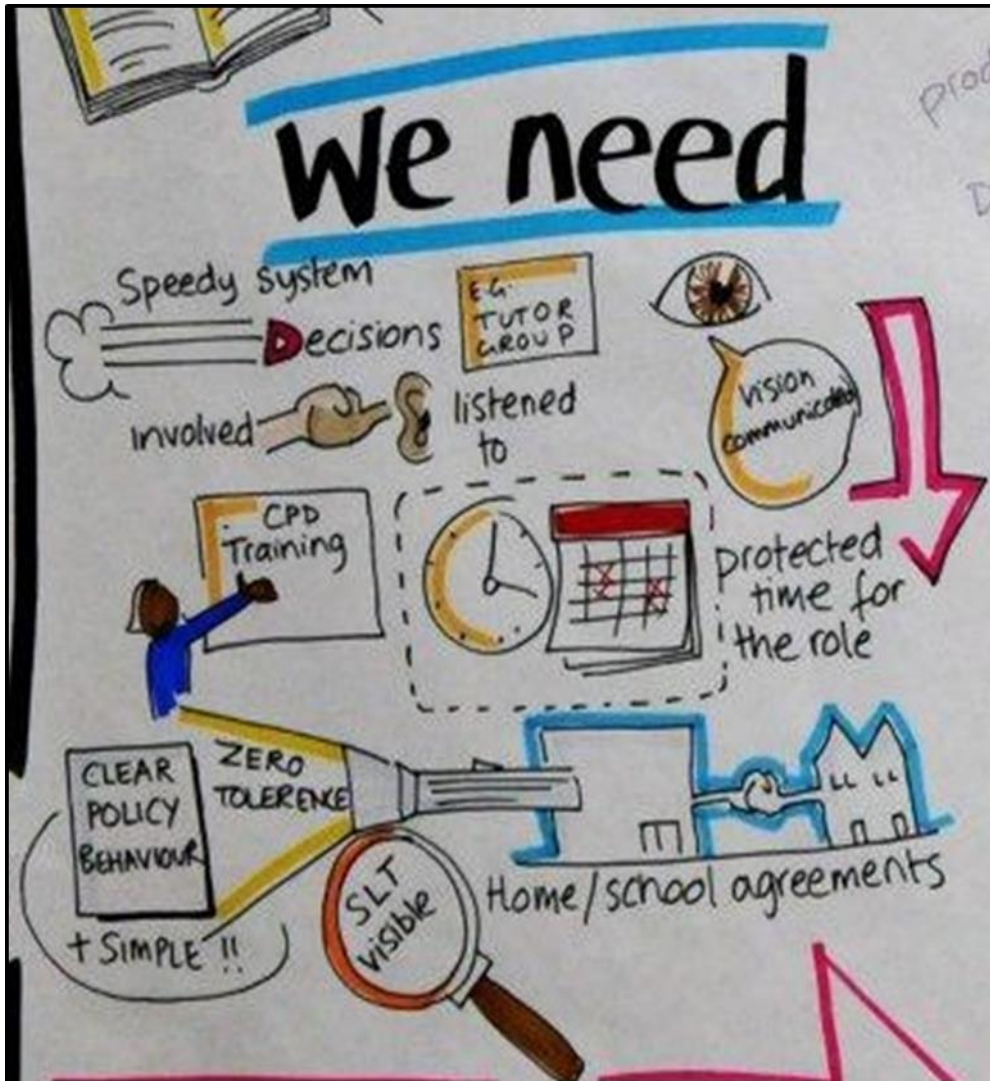 We need
Speedy System
Decisions
E.G.
TUTOR
GROUP
involved
listened
to
Vision
communicated
CPD
Training
protected
time for
the role
CLEAR
POLICY
BEHAVIOUR
+ SIMPLE !!
ZERO
TOLERENCE
SLT
visible
Home/school agreements